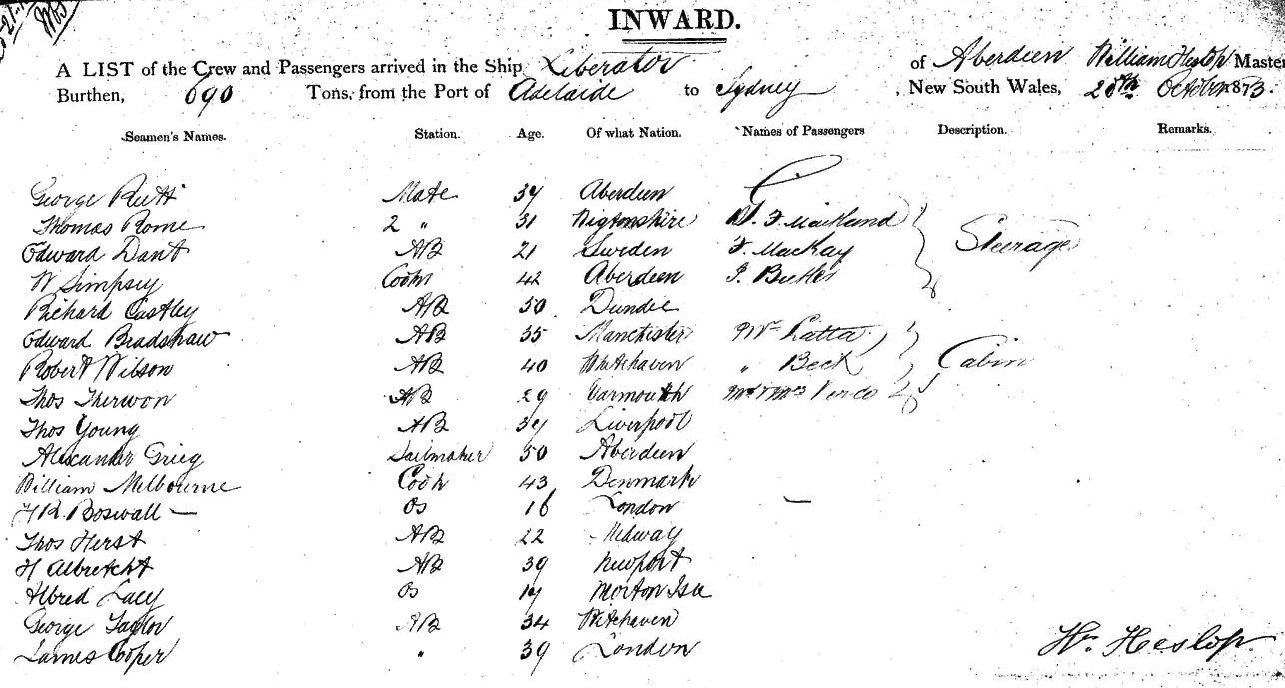 INWARD.
A LIST of the Crew and Passengers arrived in the Ship Liberator of Aberdeen William Heslop Master
Burthen, 690 Tons, from the Port of Adelaide to Sydney, New South Wales, 28th October 1873.
Seamen's Names. Station. Age. Of what Nation. Names of Passengers Description. Remarks.
George Mate Aberdeen
Thomas Rome 2 " 31 Wigtonshire Maitland
Edward Dant AB 21 Sweden F. MacKay Steerage
W Simpsey Cook 42 Aberdeen
Richard AB Dundee
Edward Bradshaw AB 35 Manchester Mr Latta
Robert Wilson AB 40 Whitehaven " Beck Cabin
Thos AB 29 Yarmouth Mr & Mrs Verco
Thos Young AB Liverpool
Alexander Grieg Sailmaker 50 Aberdeen
William Melbourne Cook 43 Denmark
H R. Boswall — Os 16 London —
Thos Herst AB 22 Medway
H Albrecht AB 39 Newport
Alfred Lacy Os 19
George Taylor AB 34 Witehaven
James Cooper " 39 London
Wm Heslop.